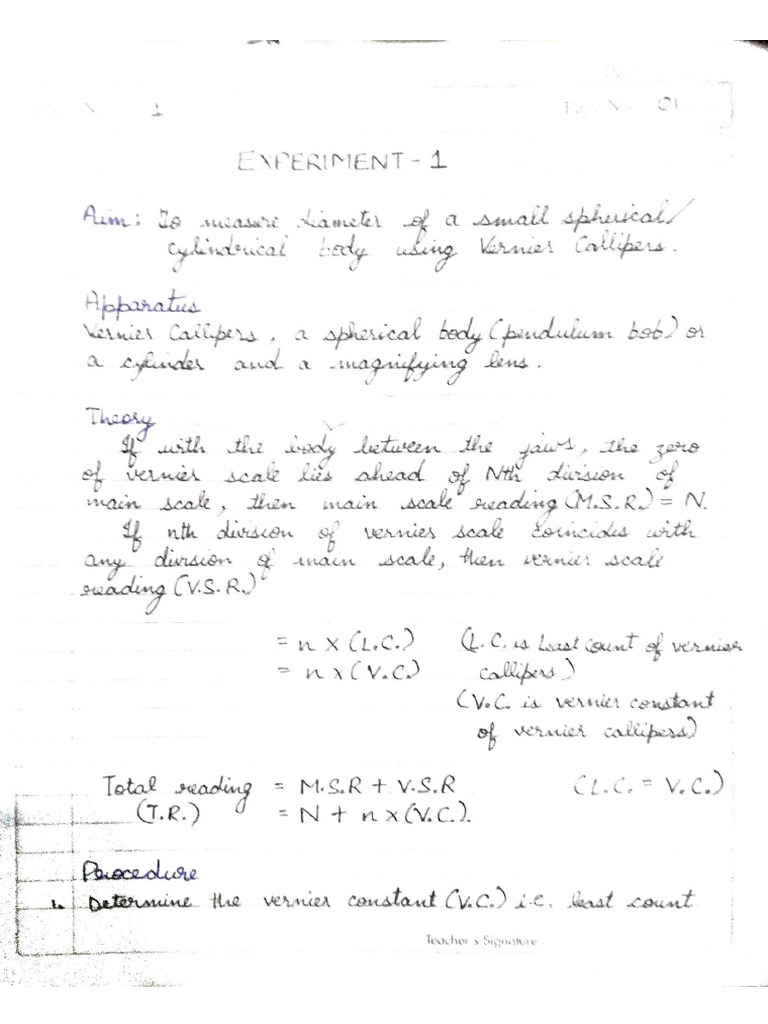 1
01
EXPERIMENT - 1
Aim: To measure diameter of a small spherical/
cylindrical body using Vernier Callipers.
Apparatus
Vernier Callipers, a spherical body (pendulum bob) or
a cylinder and a magnifying lens.
Theory
If with the body between the jaws, the zero
of vernier scale lies ahead of Nth division of
main scale, then main scale reading (M.S.R.) = N.
If nth division of vernier scale coincides with
any division of main scale, then vernier scale
reading (V.S.R.)
= n x (L.C.) (L.C. is least count of vernier
= n x (V.C.) callipers)
(V.C. is vernier constant
of vernier callipers)
Total reading = M.S.R + V.S.R (L.C. = V.C.)
(T.R.) = N + n x (V.C.).
Procedure
1. Determine the vernier constant (V.C.) i.e. least count
Teacher's Signature